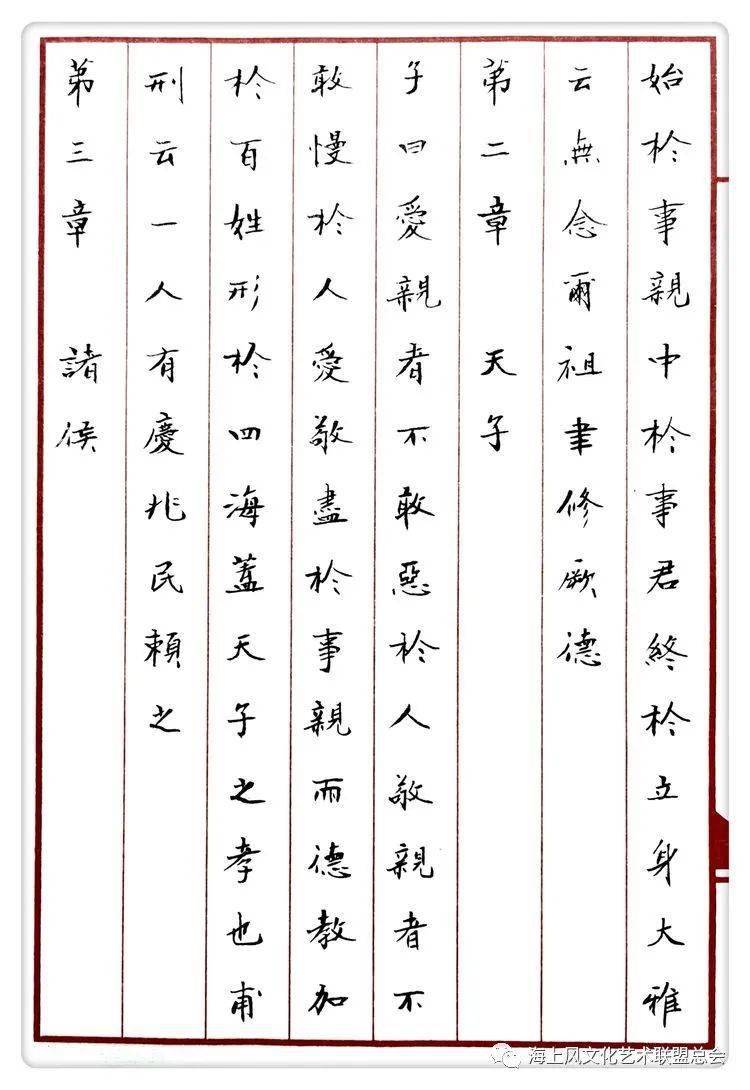 始於事親中於事君終於立身大雅
云無念爾祖聿修厥德
第二章 天子
子曰愛親者不敢惡於人敬親者不
敢慢於人愛敬盡於事親而德教加
於百姓形於四海蓋天子之孝也甫
刑云一人有慶兆民賴之
第三章 諸侯
海上风文化艺术联盟总会